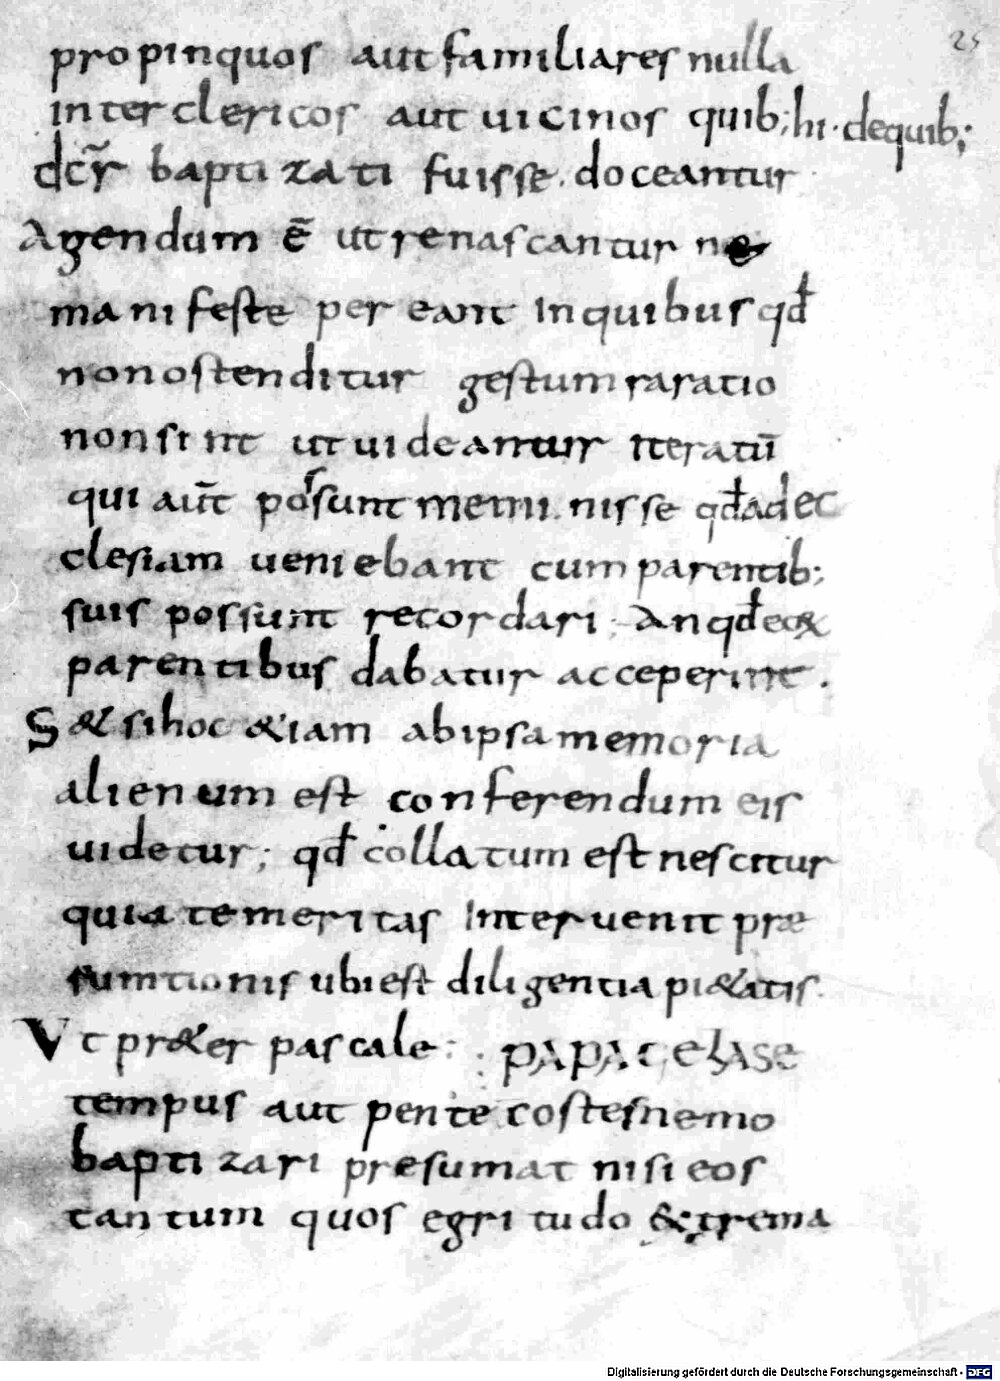 25
propinquos aut familiares nulla
inter clericos aut uicinos quib; hi · dequib;
dcr̃ baptizati fuisse. doceantur
Agendum ē ut renascantur ne
manifeste pereant Inquibus qđ
non ostenditur gestum sasatio
non sint ut uideantur Iteratū
qui aūt possunt meminisse qđ adec
clesiam ueniebant cum parentib;
suis possunt recordari; An qđ eo&
parentibus dabatur acceperint.
S& si hoc &iam abipsa memoria
alienum est conferendum eis
uidetur; qđ collatum est nescitur
quia temeritas Interuenit præ
sumtionis ubi est diligentia pi&atis.
Vt pr&er pascale: : PAPA GELASE
tempus aut pentecostes nemo
baptizari presumat nisi eos
tantum quos egritudo &trema
Digitalisierung gefördert durch die Deutsche Forschungsgemeinschaft - DFG